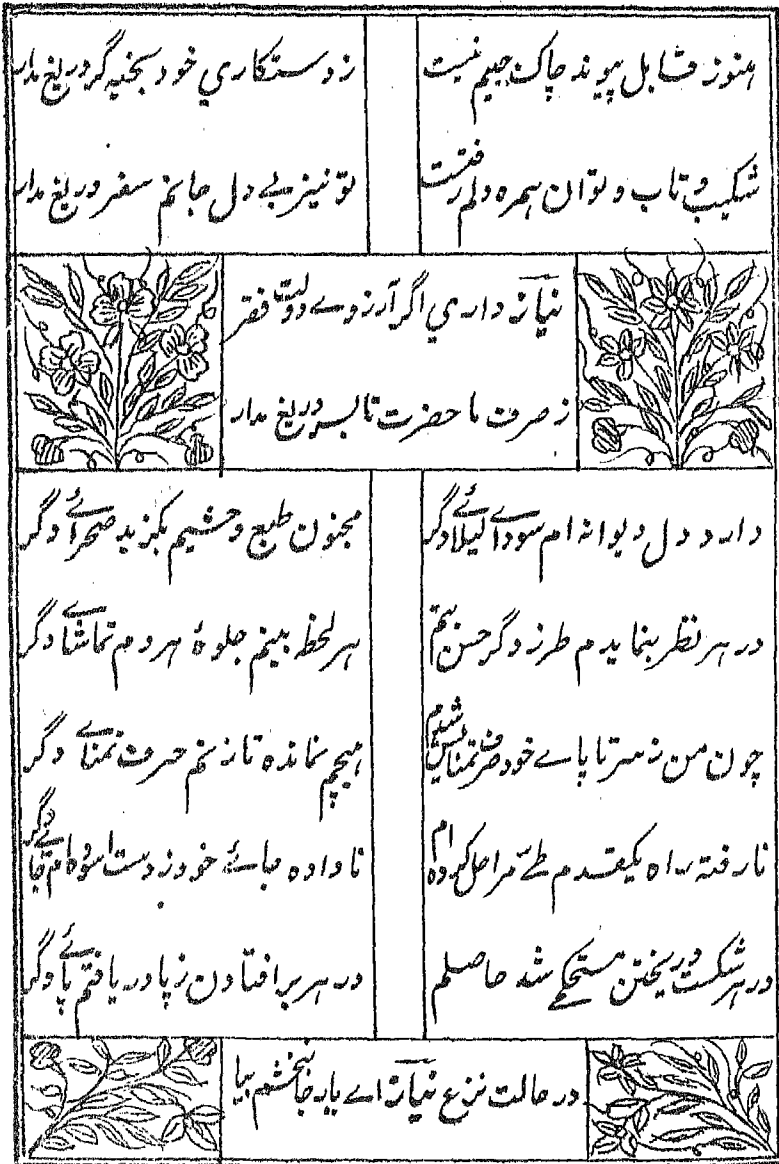 هنوز قابل پیوند چاک جیبم نیست
زدستکاری خود بخیه گر دریغ مدار
شکیب و تاب و توان همره دلم رفتست
تو نیز بے دل جانم سفر دریغ مدار
نیاز داری اگر آرزوے دولت فقر
ز صرف ما حضرت تا بسر دریغ مدار
دارد دل دیوانه ام سوداے لیلائے دگر
مجنون طبع وحشیم بگزید صحرائے دگر
در هر نظر بنمایدم طرز دگر حسن بتم
هر لحظه بینم جلوهٔ هر دم تماشاے دگر
چون من ز سر تا پاے خود صرف تمنایش شدم
هیچم نمانده تا زنم حرف تمناے دگر
نارفته راه یکقدم طے مراحل کرده ام
ناداده جائے خود ز دست آسوده ام جائے دگر
در هر شکست و ریختن مستحکمے شد حاصلم
در هر بر افتادن ز پا در یافتم پائے دگر
در حالت نزع نیاز اے یار جانبخشم بیا